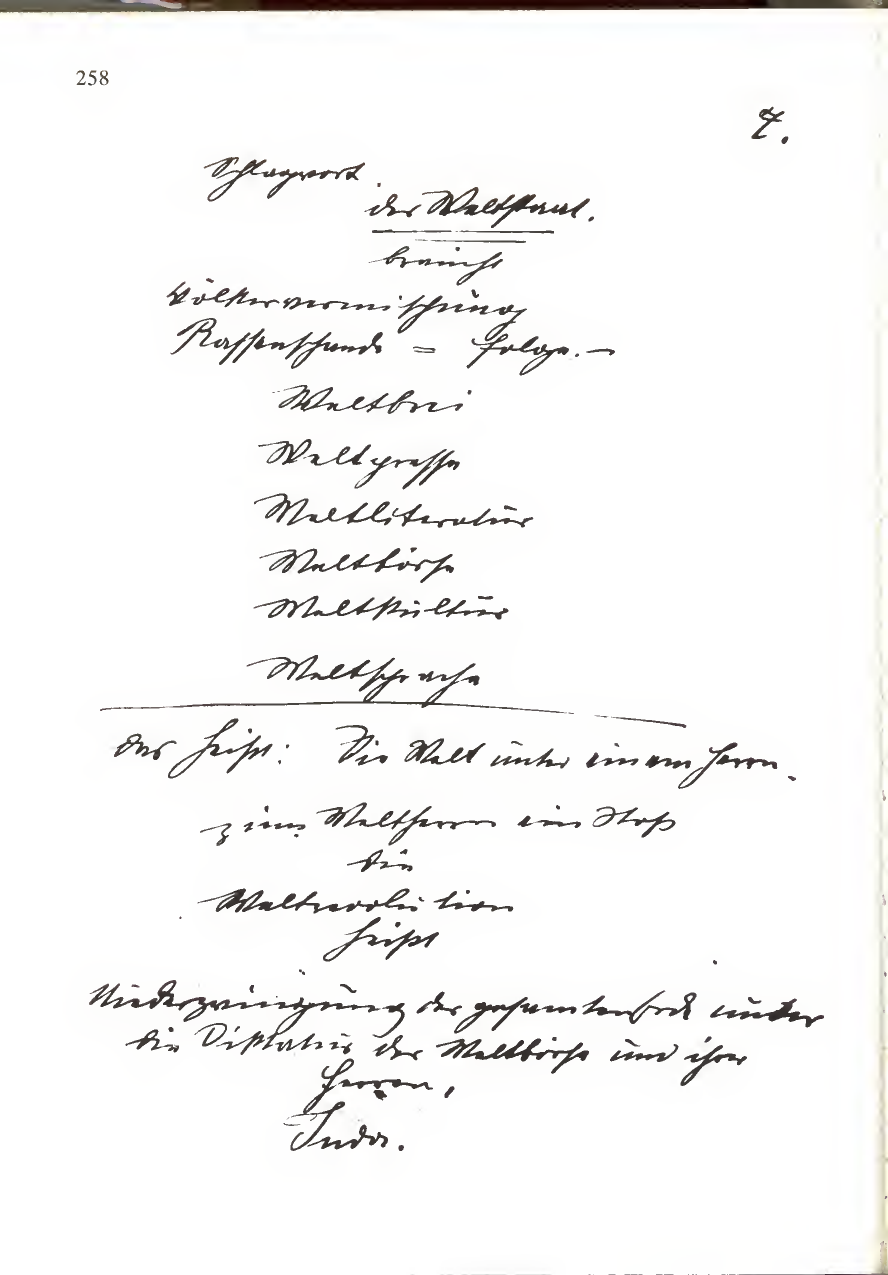 258
7.
Schlagwort
der Weltstaat.
braucht
Völkervermischung
Rassenschande = Folge. —
Weltbrei
Weltpresse
Weltliteratur
Weltbörse
Weltkultur
Weltsprache
das heißt: Die Welt unter einem Herrn.
zum Weltherrn ein Stoß
die
Weltrevolution
heißt
Niederzwingung der gesamten Erde unter
die Diktatur der Weltbörse und ihrer
Herren,
Juda.